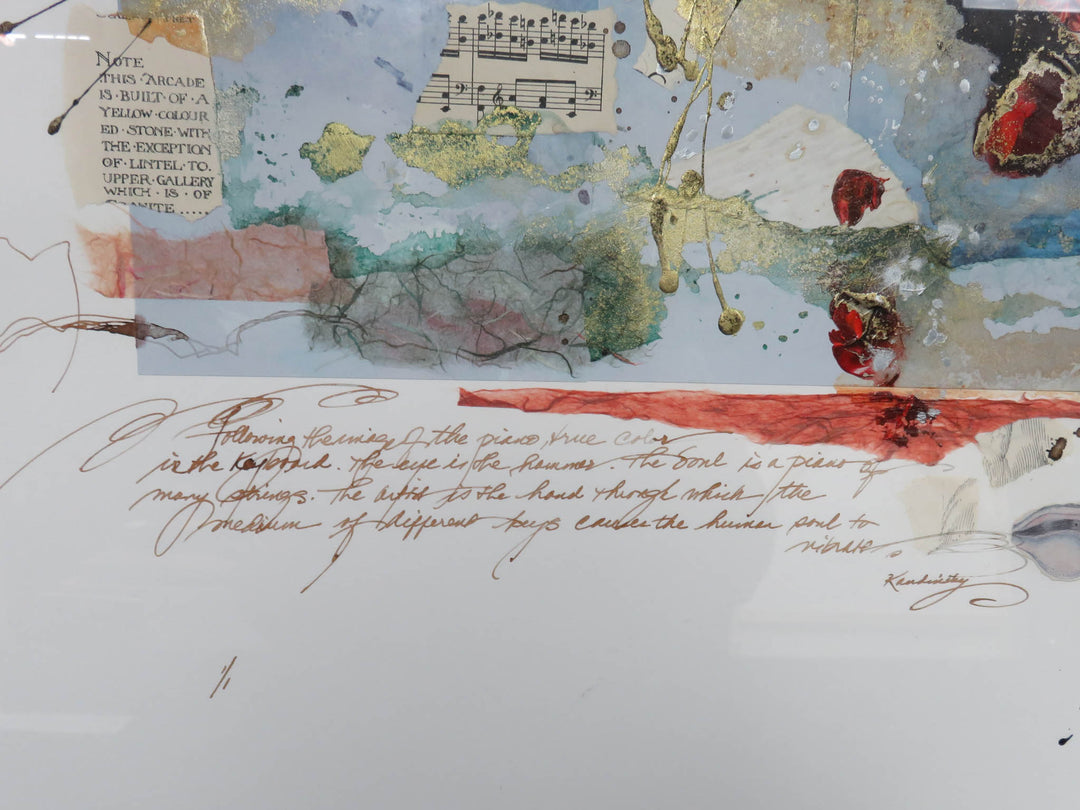 NOTE
THIS ARCADE
IS · BUILT · OF · A
YELLOW · COLOUR
ED · STONE · WITH
THE · EXCEPTION
OF · LINTEL · TO
UPPER · GALLERY
WHICH · IS · OF
GRANITE .....
Following the image of the piano, true color
is the Keyboard. The eye is the hammer. The Soul is a piano of
many strings. The artist is the hand through which the
medium of different keys causes the human soul to
vibrate.
Kandinsky
1/1